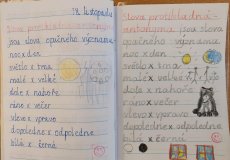 18. listopadu
Slova protikladná -
antonyma
jsou slova opačného významu
noc x den
světlo x tma
malé x velké
dole x nahoře
ráno x večer
vlevo x vpravo
dopoledne x odpoledne
bílá x černá
Slova protikladná -
antonyma jsou slova
opačného významu
noc x den
světlo x tma
malé x velké
dole x nahoře
ráno x večer
vlevo x vpravo
dopoledne x odpoledne
bílá x černá